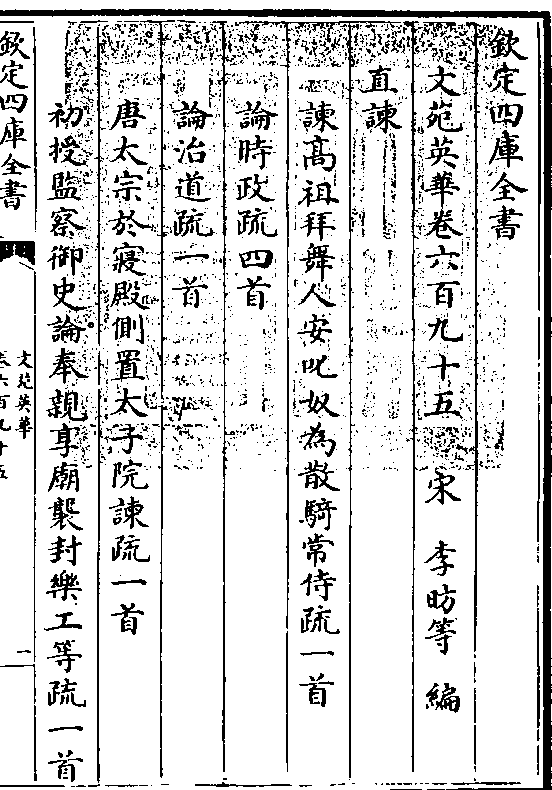 欽定四庫全書
文苑英華卷六百九十五　宋　李昉等　編
直諫
諫高祖拜舞人安叱奴為散騎常侍疏一首
論時政疏四首
論治道疏一首
唐太宗於寢殿側置太子院諫疏一首
初授監察御史論奉親享廟襲封樂工等疏一首
欽定四庫全書
文苑英華
卷六百九十五